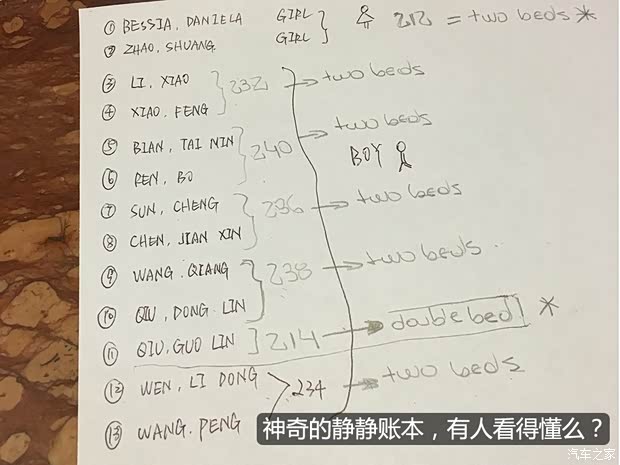 ① BESSIA, DANIELA GIRL 212 = two beds *
② ZHAO, SHUANG GIRL
③ LI, XIAO 232 → two beds
④ XIAO, FENG
⑤ BIAN, TAI NIN 240 → two beds
⑥ REN, BO BOY
⑦ SUN, CHENG 236 → two beds
⑧ CHEN, JIAN XIN
⑨ WANG. QIANG 238 → two beds
⑩ QIU, DONG LIN
⑪ QIU, GUO LIN 214 → double bed *
⑫ WEN, LI DONG 234 → two beds
⑬ WANG. PENG
神奇的静静账本，有人看得懂么？
汽车之家